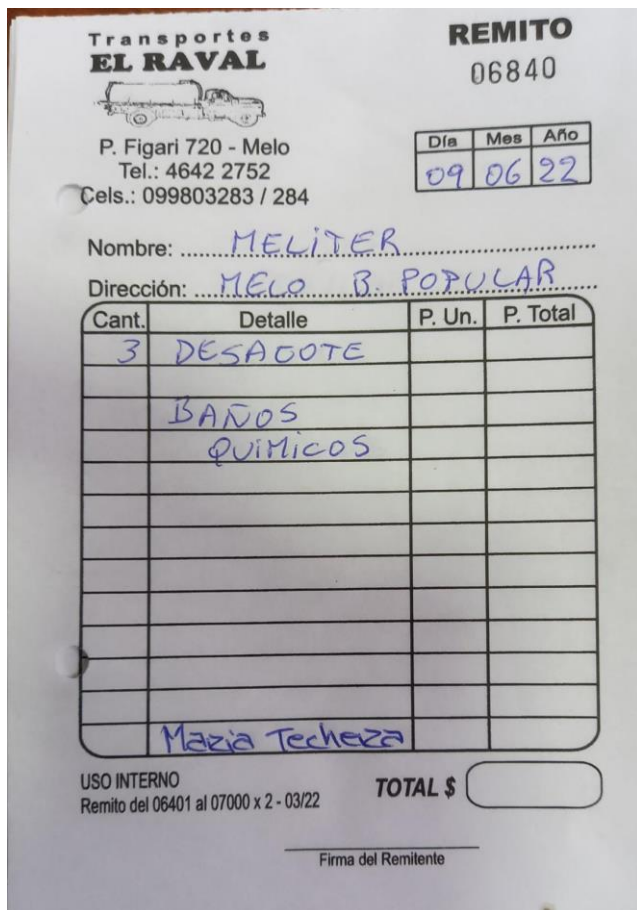 Transportes
EL RAVAL
P. Figari 720 - Melo
Tel.: 4642 2752
Cels.: 099803283 / 284
REMITO
06840
Día Mes Año
09 06 22
Nombre: MELITER
Dirección: MELO B. POPULAR
Cant. Detalle P. Un. P. Total
3 DESAGOTE
BAÑOS
QUIMICOS
Maria Techeza
USO INTERNO
Remito del 06401 al 07000 x 2 - 03/22
TOTAL $
Firma del Remitente